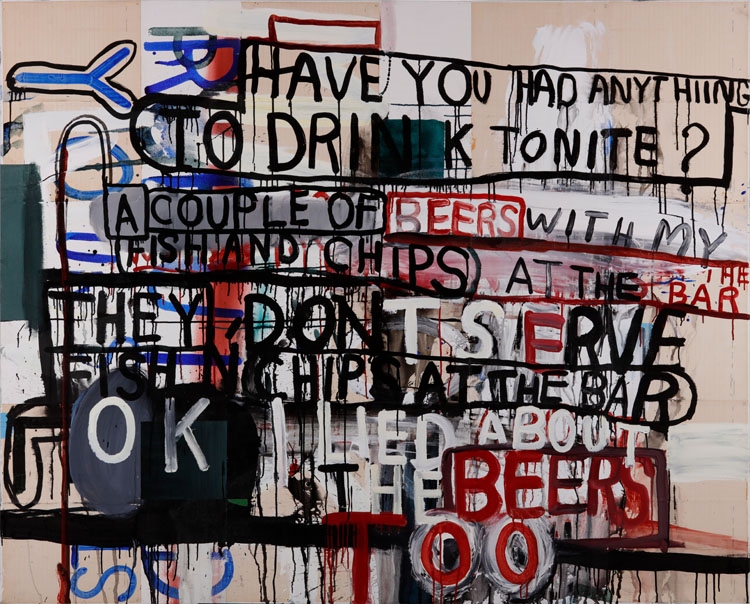 HAVE YOU HAD ANYTHIING
TO DRINK TONITE?
A COUPLE OF BEERS WITH MY
(FISH AND CHIPS) AT THE BAR THE BAR
THEY DON'T SERVE
FISH N CHIPS AT THE BAR
OK I LIED ABOUT
THE BEERS
TOO